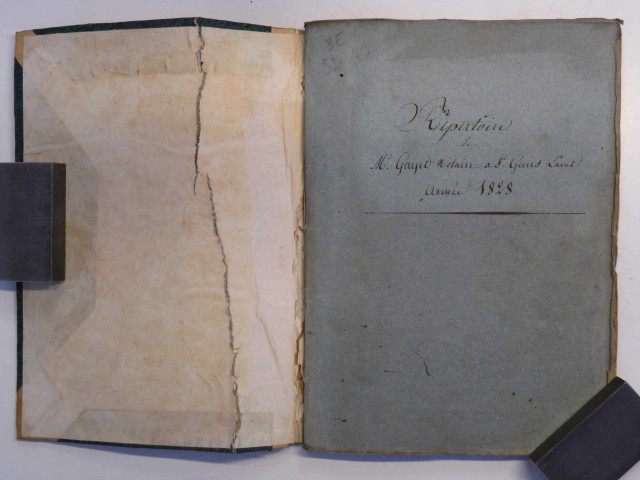 3E
Répertoire
de
Mr. Gayet Notaire a St Genis Laval
Année 1828